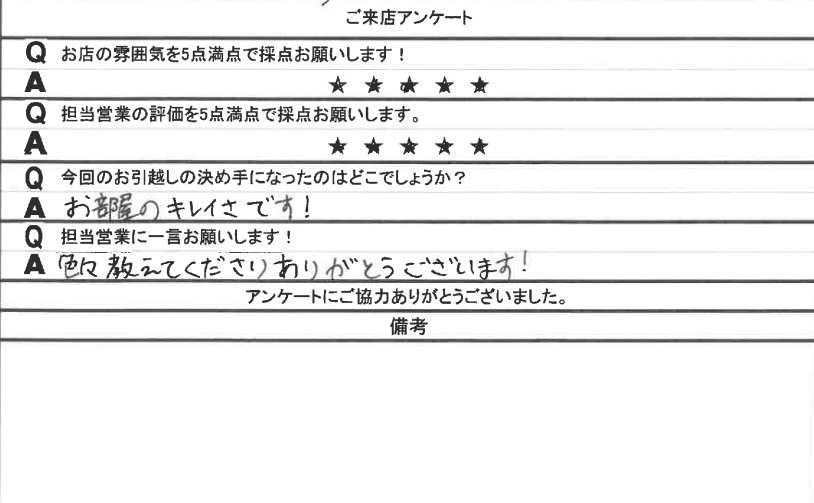 ご来店アンケート
Q お店の雰囲気を5点満点で採点お願いします！
A ★ ★ ★ ★ ★
Q 担当営業の評価を5点満点で採点お願いします。
A ★ ★ ★ ★ ★
Q 今回のお引越しの決め手になったのはどこでしょうか？
A お部屋のキレイさです！
Q 担当営業に一言お願いします！
A 色々教えてくださりありがとうございます！
アンケートにご協力ありがとうございました。
備考